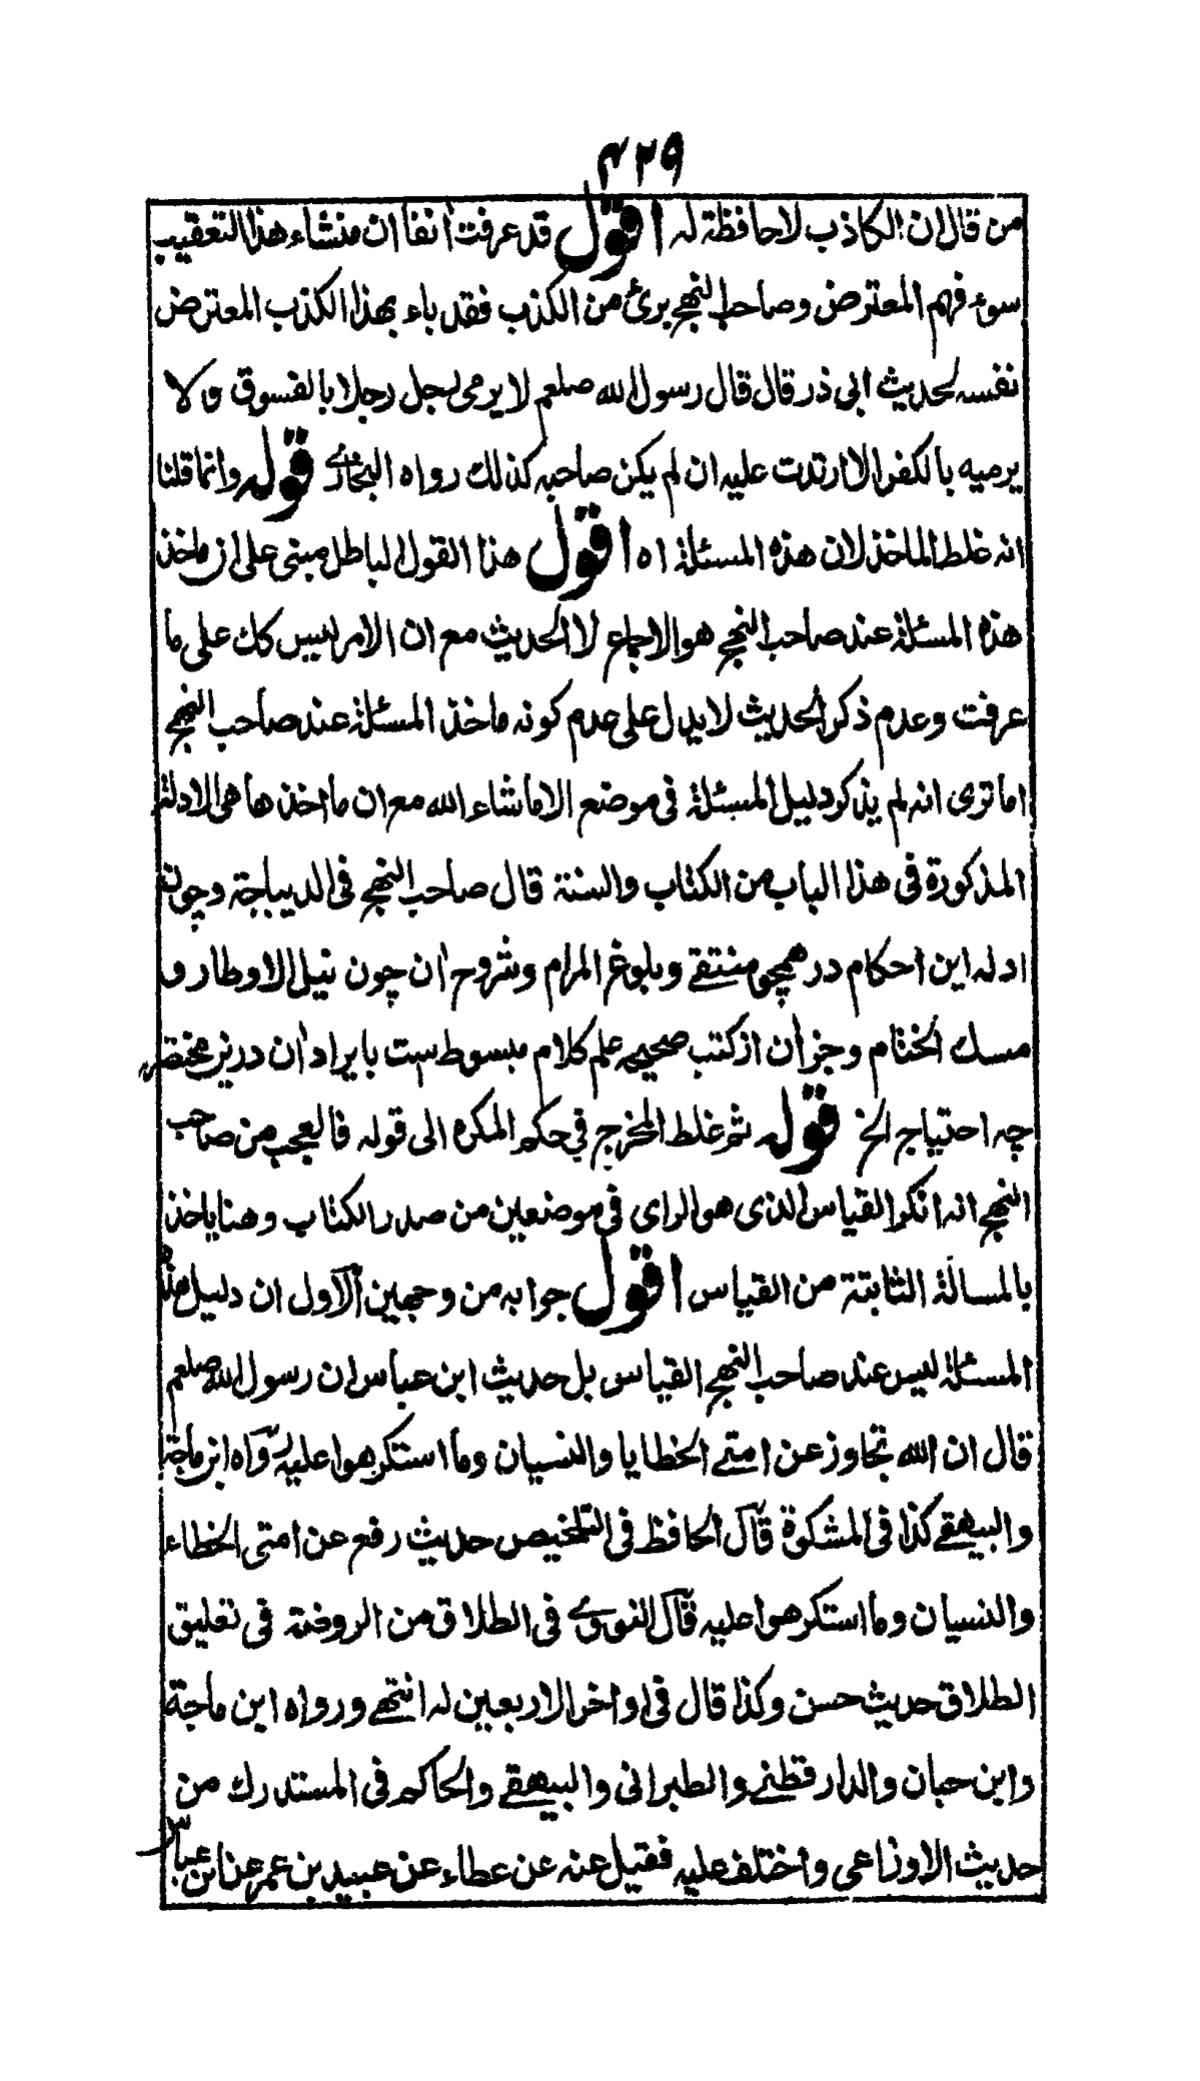 ۴۲۹
من قال ان الكاذب لا حافظة له اقول قد عرفت اٰنفا ان منشاء هذا التعقيب
سوء فهم المعترض وصاحب النهج برئ من الكذب فقد باء بهذا الكذب المعترض
نفسه لحديث ابى ذر قال قال رسول الله صلعم لا يرمى رجل رجلا بالفسوق ولا
يرميه بالكفر الا ارتدت عليه ان لم يكن صاحبه كذلك رواه البخارے قوله وانما قلنا
انه غلط الماخذ لان هذه المسئلة اه اقول هذا القول الباطل مبنى على ان ماخذ
هذه المسئلة عند صاحب النهج هو الاجماع لا الحديث مع ان الامر ليس كك على ما
عرفت وعدم ذكر الحديث لا يدل على عدم كونه ماخذ المسئلة عند صاحب النهج
اما ترى انه لم يذكر دليل المسئلة فى موضع الا ماشاء الله مع ان ماخذها هى الادلة
المذكورة فى هذا الباب من الكتاب والسنة قال صاحب النهج فى الديباجة وچون
ادله اين احكام در همچو منتقے وبلوغ المرام وشروح اٰن چون نيل الاوطار و
مسك الختام وجز اٰن از كتب صحيحه علم كلام مبسوط ست بايراد اٰن درين مختصر
چه احتياج الخ قوله ثم غلط المخرج فى حكم المكره الى قوله فالعجب من صاحب
النهج انه انكر القياس الذى هو الراى فى موضعين من صدر الكتاب وهنا ياخذ
بالمسالة الثابتة من القياس اقول جوابه من وجهين الاول ان دليل هذه
المسئلة ليس عند صاحب النهج القياس بل حديث ابن عباس ان رسول الله صلعم
قال ان الله تجاوز عن امتے الخطايا والنسيان وما استكرهوا عليه رواه ابن ماجة
والبيهقے كذا فى المشكوة قال الحافظ فى التلخيص حديث رفع عن امتى الخطاء
والنسيان وما استكرهوا عليه قال النووے فى الطلاق من الروضة فى تعليق
الطلاق حديث حسن وكذا قال فى اواخر الاربعين له انتهے ورواه ابن ماجة
وابن حبان والدارقطنے والطبرانى والبيهقے والحاكم فى المستدرك من
حديث الاوزاعى واختلف عليه فقيل عنه عن عطاء عن عبيد بن عمير عن ابن عباس